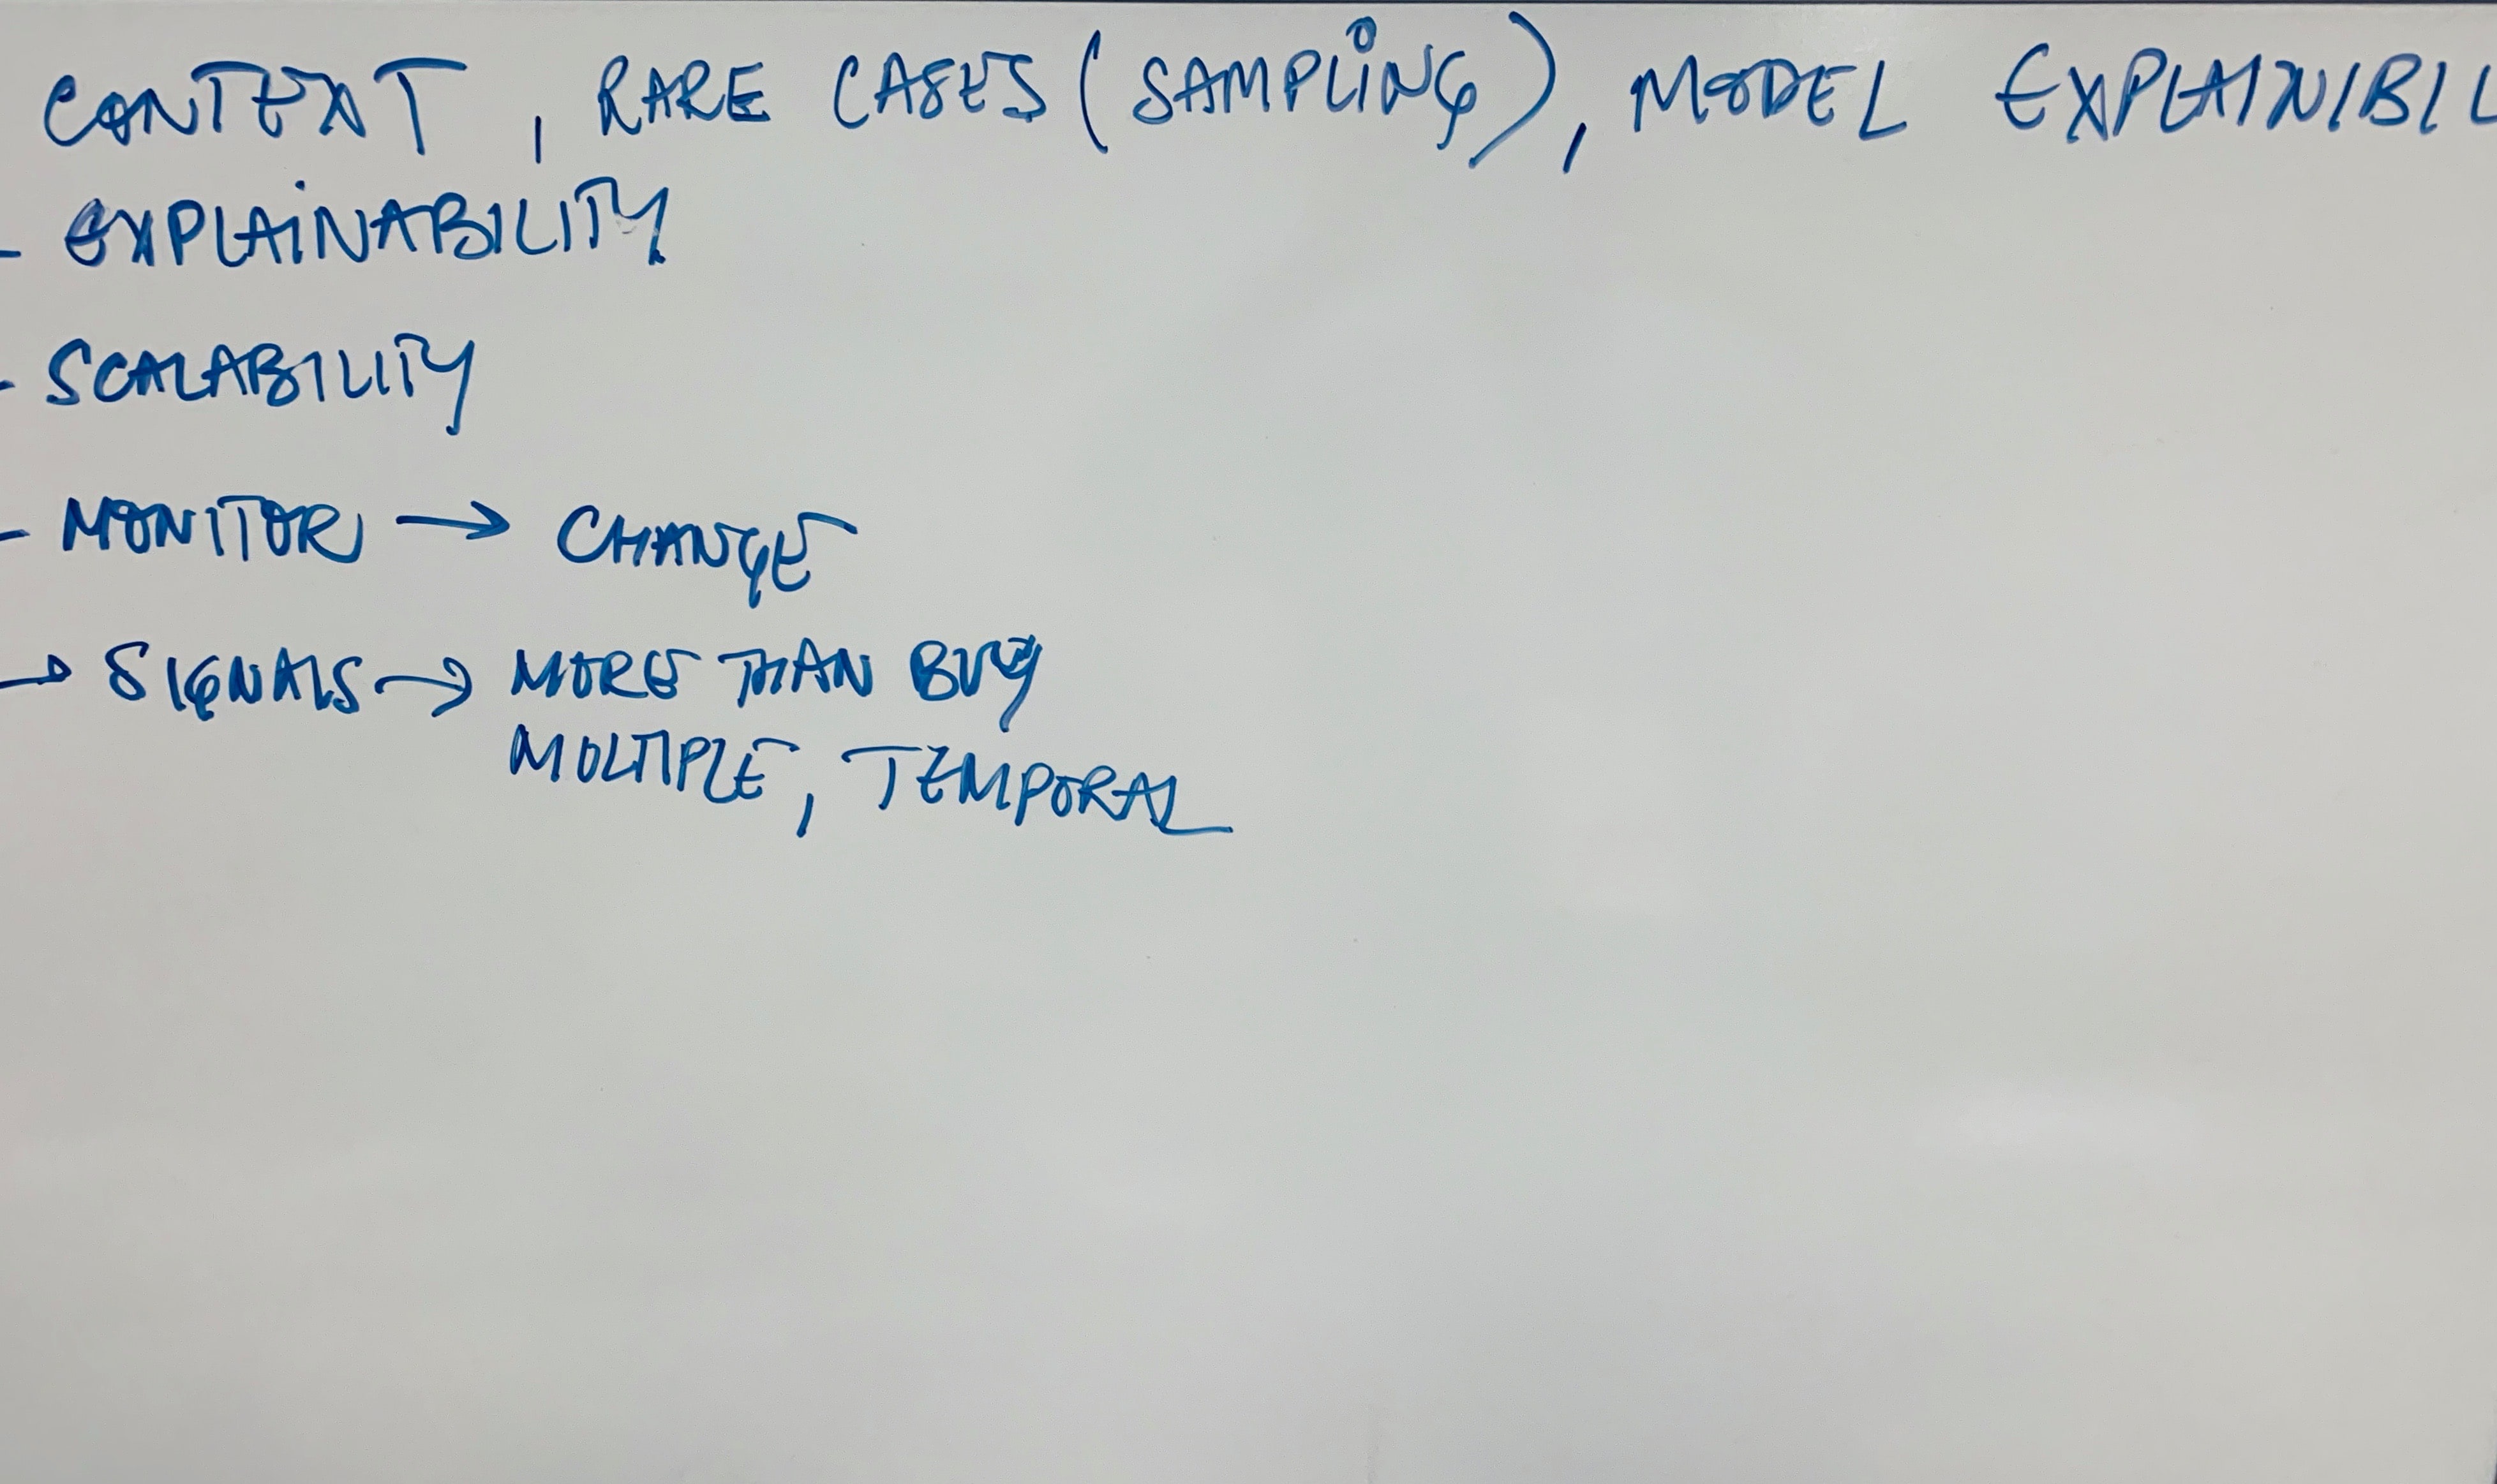 CONTEXT, RARE CASES (SAMPLING), MODEL EXPLAINIBIL
- EXPLAINABILITY
- SCALABILITY
- MONITOR → CHANGE
→ SIGNALS → MORE THAN BUY
MULTIPLE, TEMPORAL